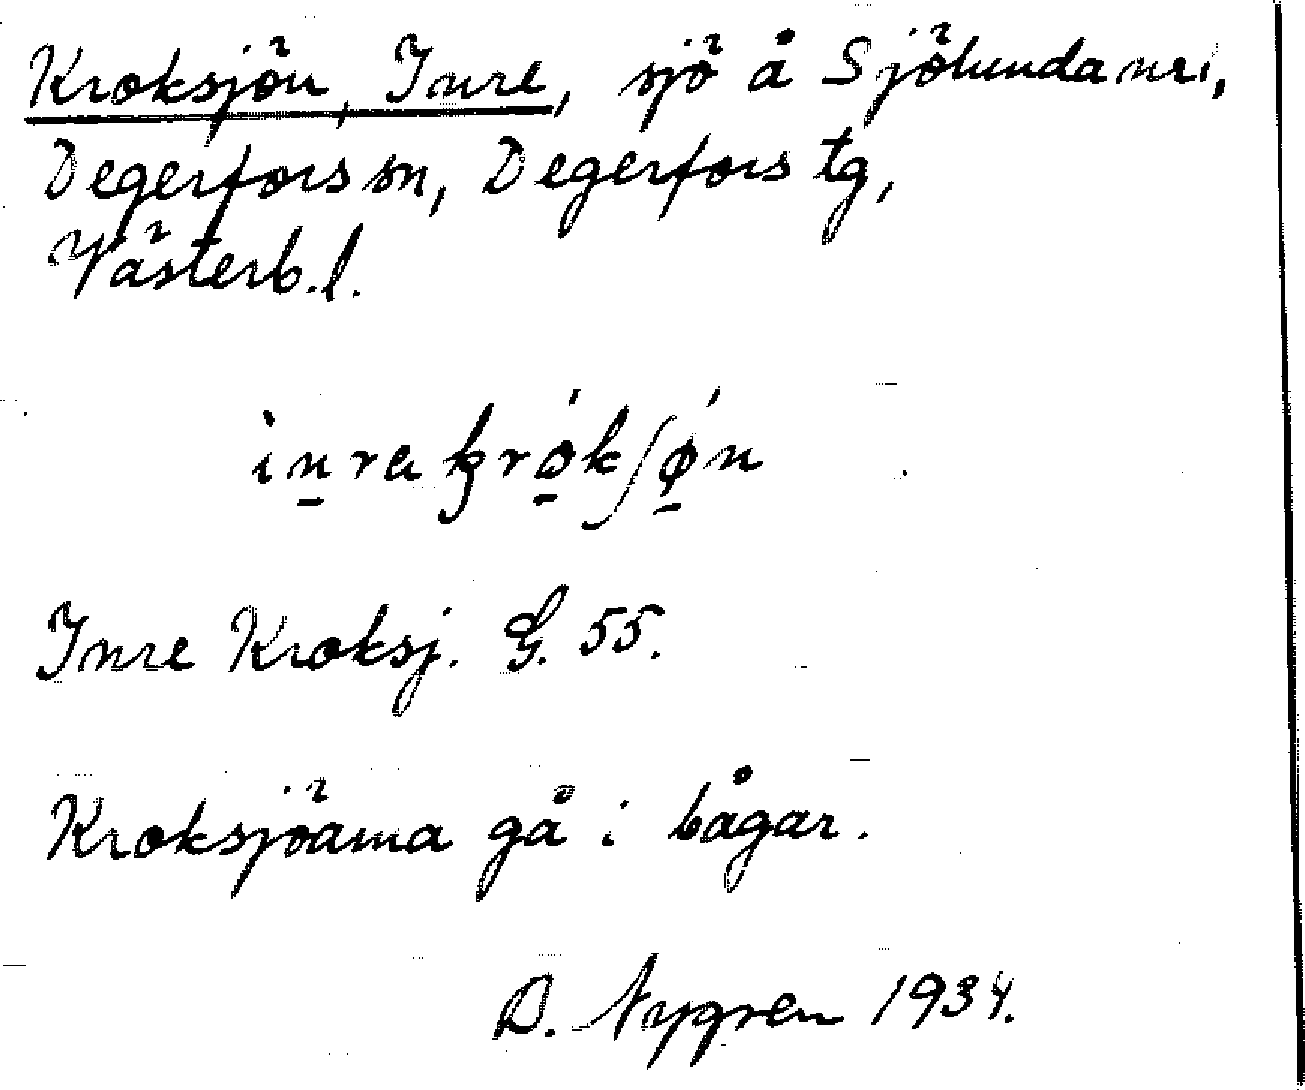 Kroksjön, Inre, sjö å Sjölunda ner,
Degerfors sn, Degerfors tg,
Västerb. l.
ìn̲ra kró̲kʃǿ̲n
Inre Kroksj. G. 55.
Kroksjöarna gå i bågar.
D. Nygren 1934.